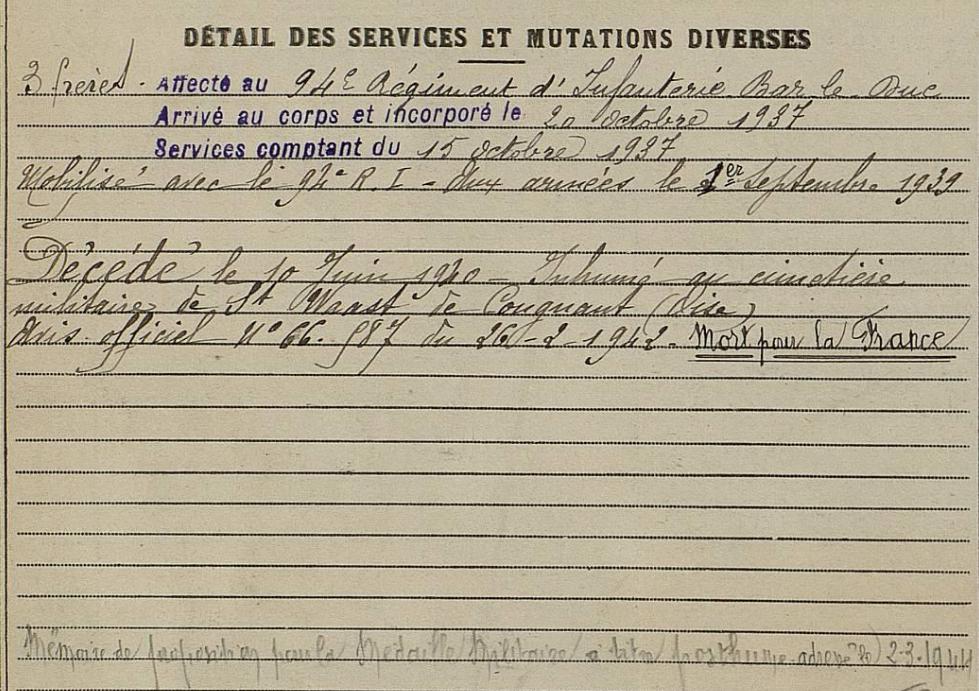 DÉTAIL DES SERVICES ET MUTATIONS DIVERSES
3 frères - Affecté au 94e Régiment d'Infanterie Bar le Duc
Arrivé au corps et incorporé le 20 octobre 1937
Services comptant du 15 octobre 1937
Mobilisé avec le 94e R.I - Aux armées le 1er Septembre 1939
Décédé le 10 Juin 1940 - Inhumé au cimetière
militaire de St Waast de Cougnant (Oise)
Avis officiel N° 66.587 du 26-2-1942 - Mort pour la France
Mémoire de proposition pour la Médaille Militaire à titre posthume adressé le 2-3-1944